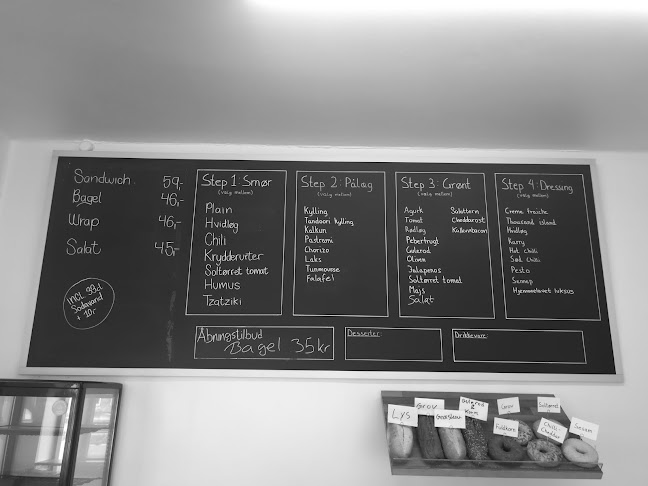 Sandwich 59,-
Bagel 46,-
Wrap 46,-
Salat 45,-
Sodavand
+ 10r
Step 1: Smør
(vælg mellem)
Plain
Hvidløg
Chili
Krydderurter
Soltørret tomat
Humus
Tzatziki
Step 2: Pålæg
(vælg mellem)
Kylling
Tandoori kylling
Kalkun
Pastrami
Chorizo
Laks
Tunmousse
Falafel
Step 3: Grønt
(vælg mellem)
Agurk
Tomat
Rødløg
Peberfrugt
Gulerod
Oliven
Jalapenos
Soltørret tomat
Majs
Salat
Salattern
Cheddarost
Step 4: Dressing
(vælg mellem)
Creme fraiche
Thousand island
Hvidløg
Karry
Hot Chilli
Sød Chilli
Pesto
Sennep
Hjemmelavet luksus
Åbningstilbud
Bagel 35 kr
Desserter:
Drikkevare:
LYS
Grov
Gulerod
Soltørret
Fuldkorn
Chilli
Cheddar
Sesam